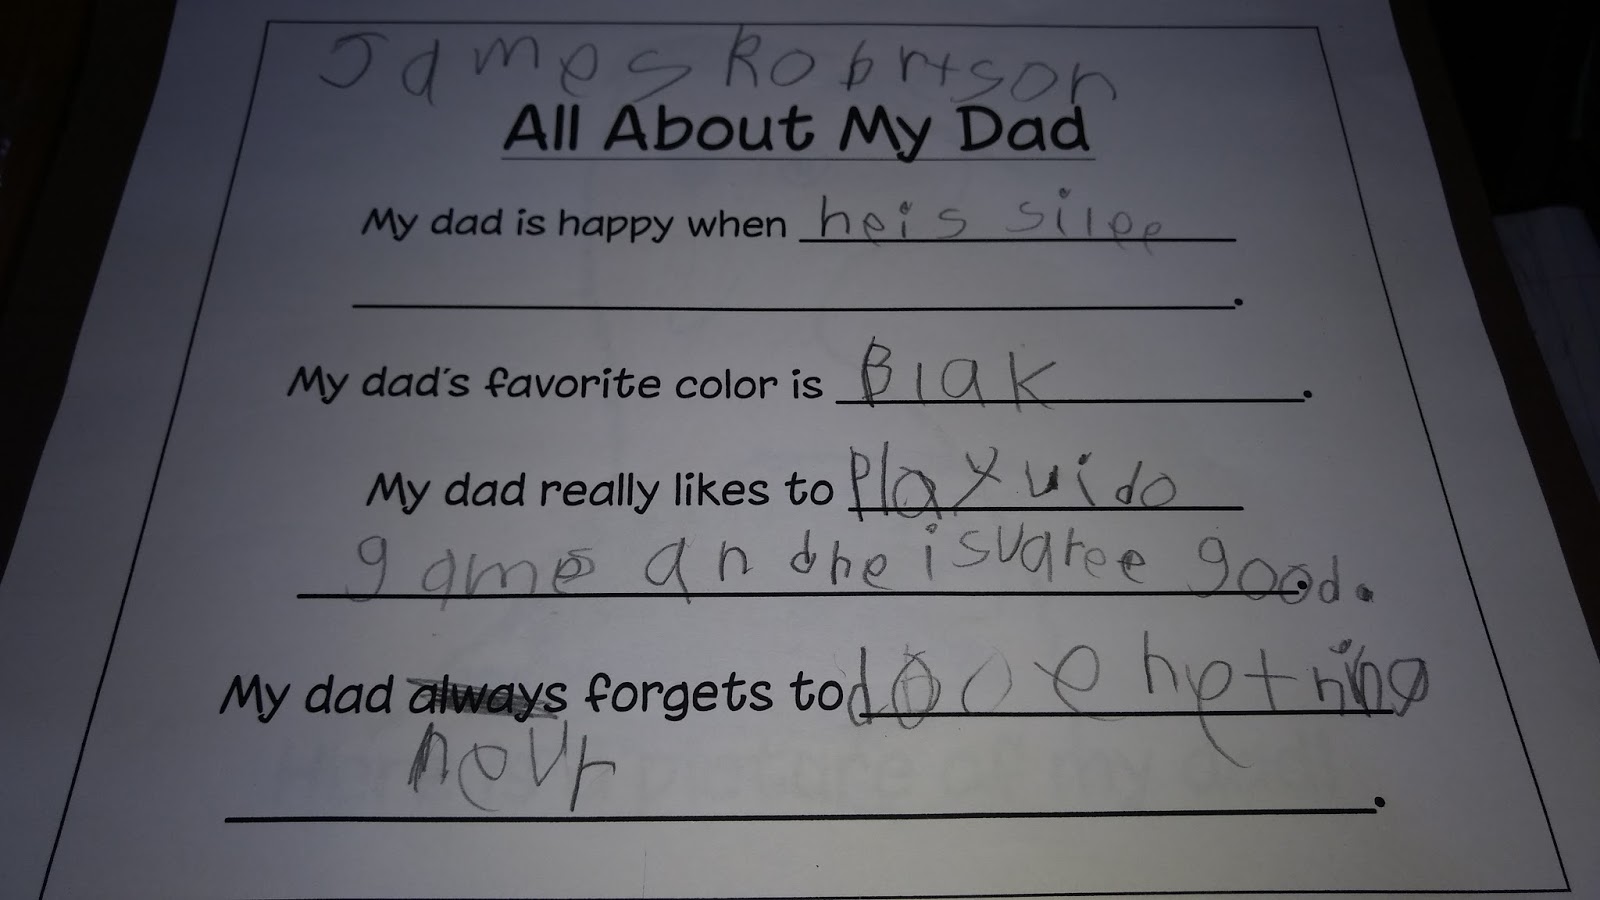 James Robrtson
All About My Dad
My dad is happy when he is silee
.
My dad's favorite color is Blak.
My dad really likes to Play vido
games an dhe is varee good.
My dad always forgets to do
nevr
.